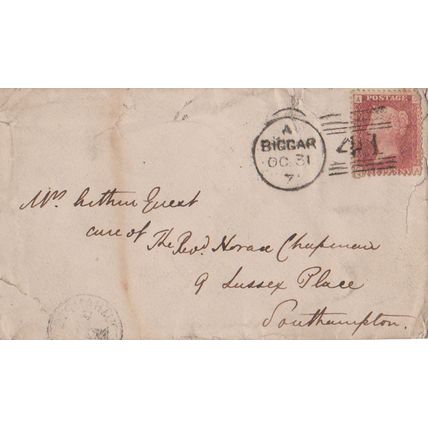 POSTAGE
A
BIGGAR
OC 31
7
41
Mrs Arthur Guest
care of The Revd. Horace Chapman
9 Sussex Place
Southampton.